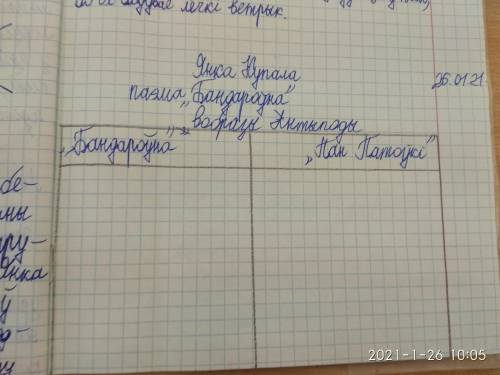 легкі ветрык.
Янка Купала
26.01.21
паэма „Бандароўна"
вобразы Антыподы
„Бандароўна"
„Пан Патоцкі"
бе-
ны
ру-
Янка
ў
2021-1-26 10:05